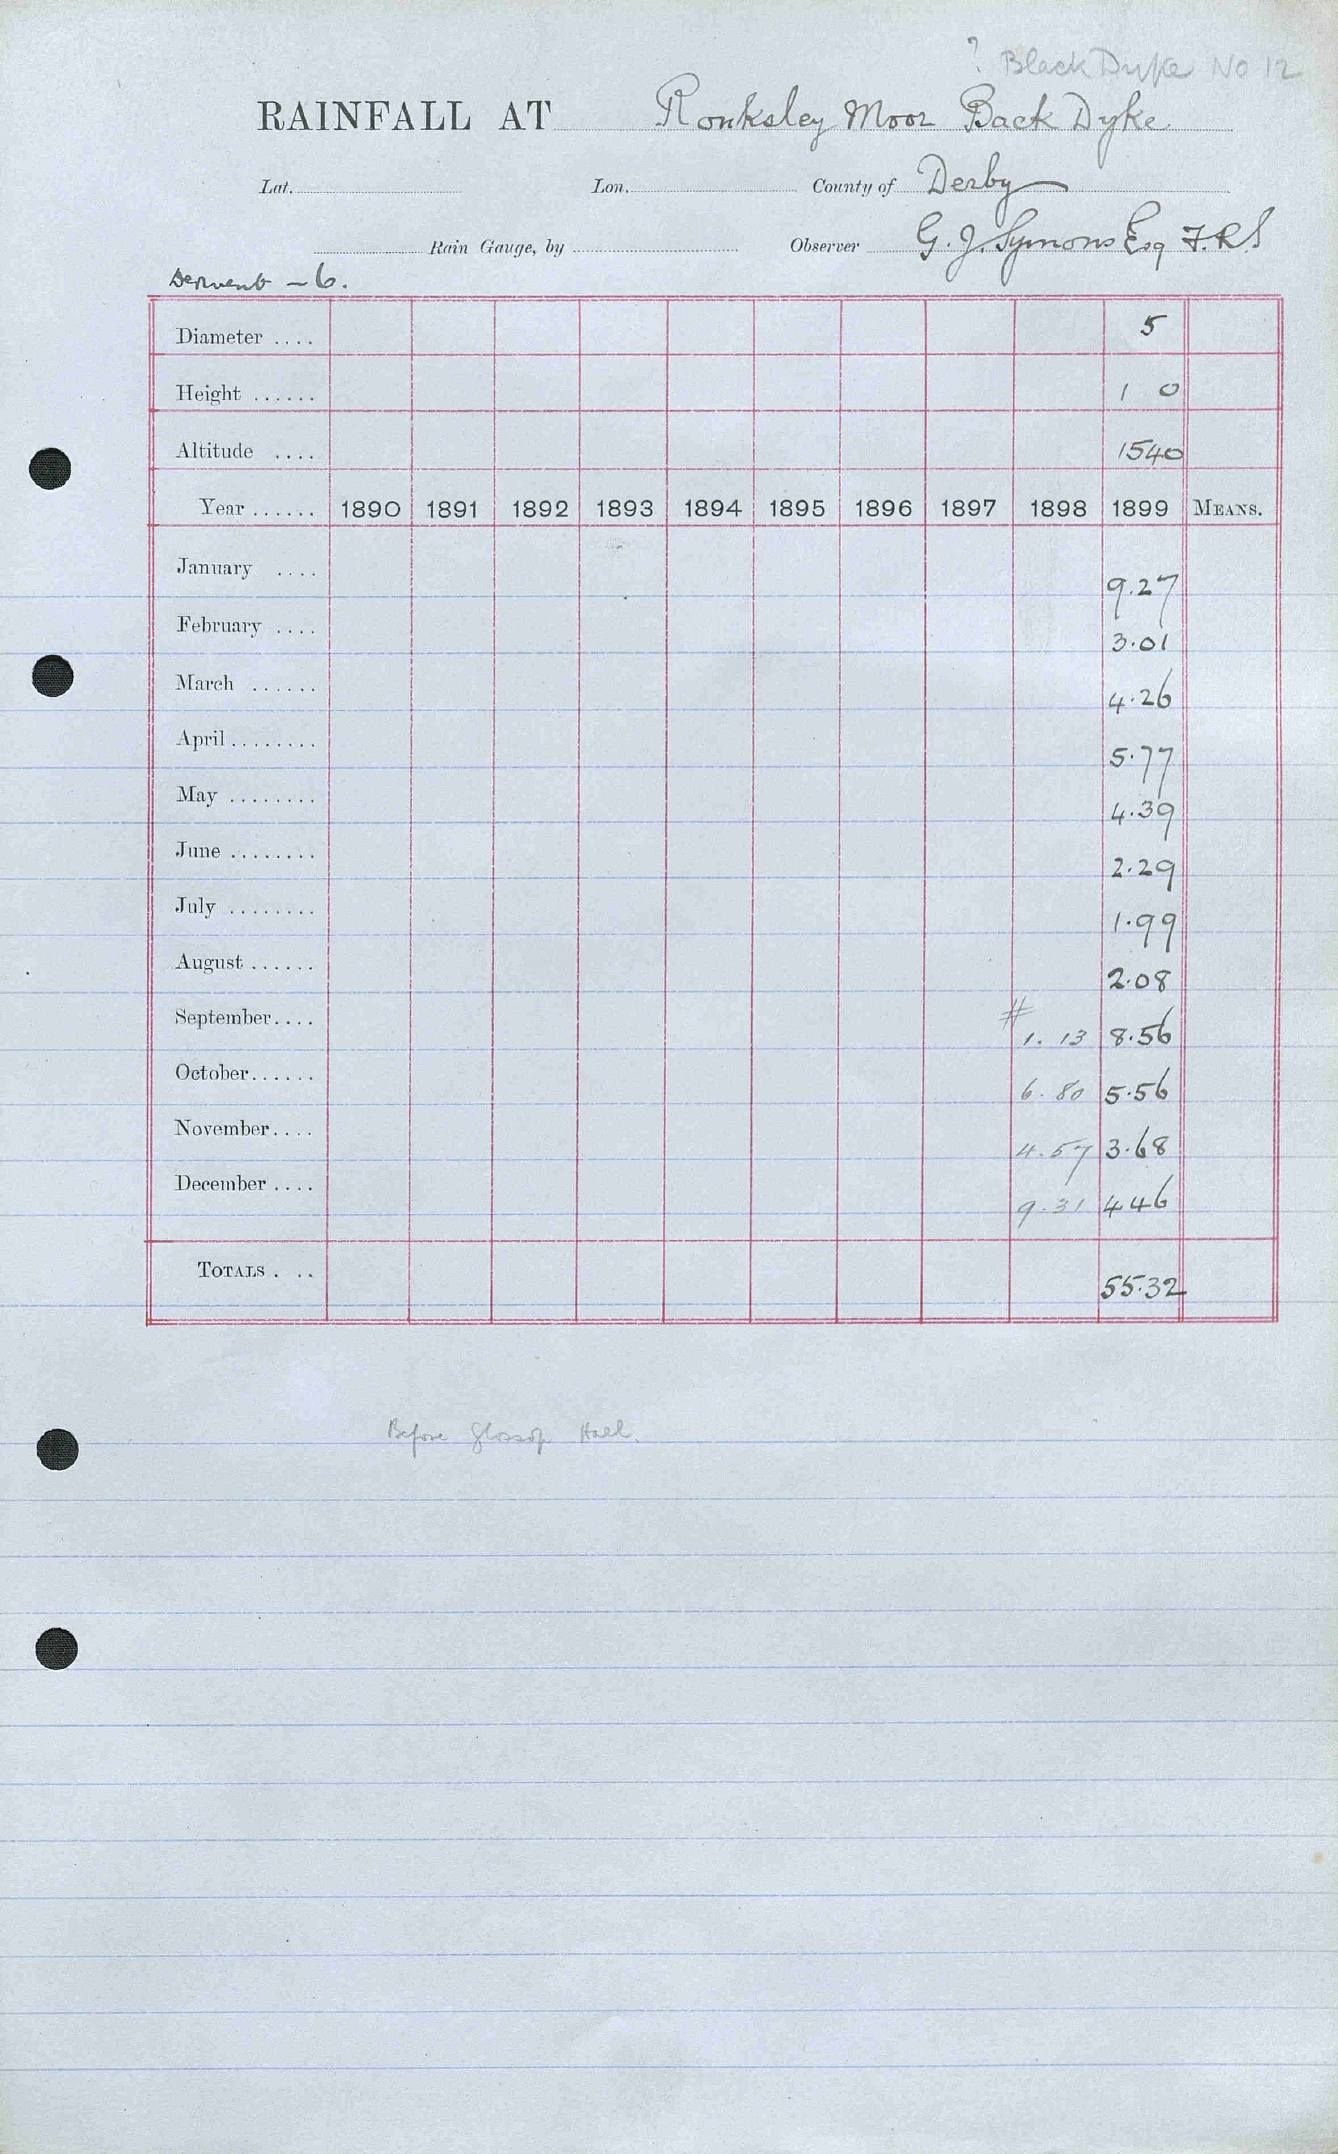 ? Black Dyke No 12
RAINFALL AT Ronksley Moor Back Dyke
Lat. Lon. County of Derby
Rain Gauge, by Observer G. J. Symons Esq F.R.S
Derwent - 6.
Diameter .... 5
Height ...... 1 0
Altitude .... 1540
Year ...... 1890 1891 1892 1893 1894 1895 1896 1897 1898 1899 MEANS.
January .... 9.27
February .... 3.01
March ...... 4.26
April ........ 5.77
May ........ 4.39
June ........ 2.29
July ........ 1.99
August ...... 2.08
September.... # 1.13 8.56
October...... 6.80 5.56
November.... 4.57 3.68
December .... 9.31 4 46
TOTALS . .. 55.32
Before Glossop Hall.